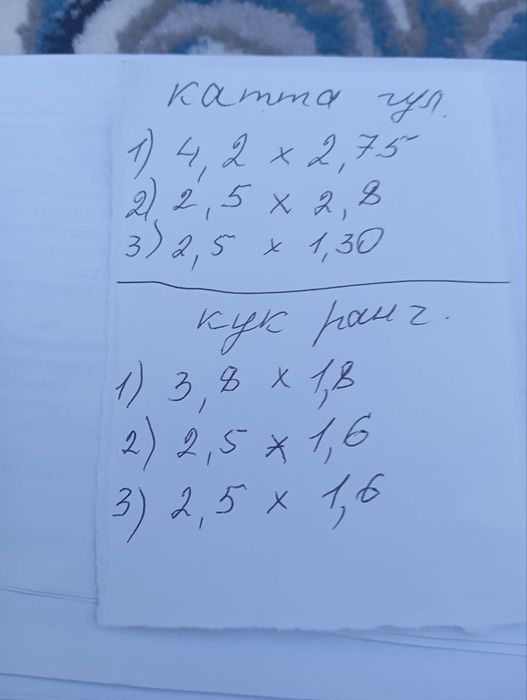 катта гул.
1) 4,2 x 2,75
2) 2,5 x 2,8
3) 2,5 x 1,30
кук ранг.
1) 3,8 x 1,8
2) 2,5 x 1,6
3) 2,5 x 1,6